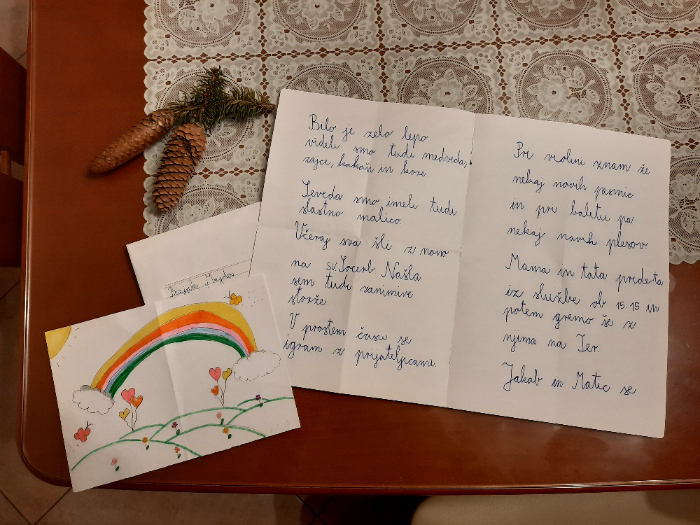 Bilo je zelo lepo
videli smo tudi medveda,
zajce, kokoši in koze.
Seveda smo imeli tudi
slastno malico.
Včeraj sva šli z nono
na sv. Socerb. Našla
sem tudi zanimive
storže.
V prostem času se
igram z prijateljicami.
Pri violini znam že
nekaj novih pesmic
in pri baletu pa
nekaj novih plesov.
Mama in tata prideta
iz službe ob 15.15 in
potem gremo še z
njima na
Jakob in Matic se